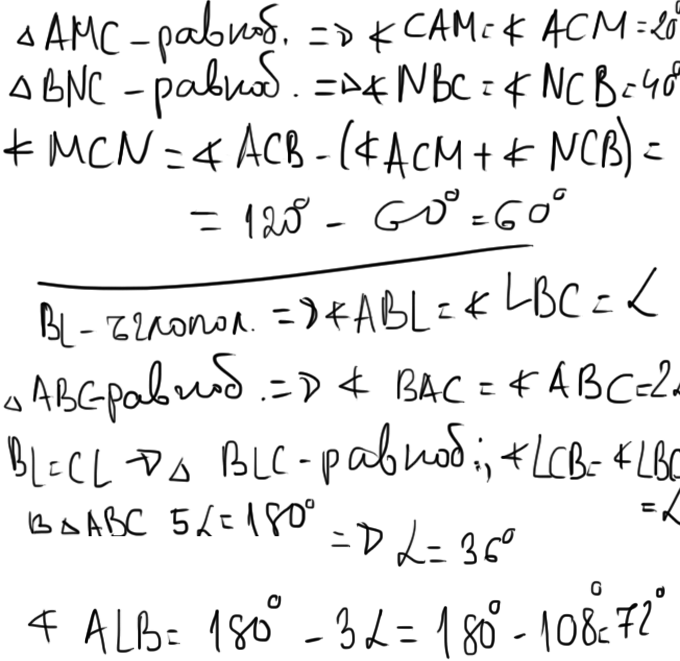 △ AMC - равноб. => ∢ CAM = ∢ ACM = 20°
△ BNC - равноб. => ∢ NBC = ∢ NCB = 40°
∢ MCN = ∢ ACB - (∢ ACM + ∢ NCB) =
= 120° - 60° = 60°
BL - ъглопол. => ∢ ABL = ∢ LBC = α
△ ABC - равноб. => ∢ BAC = ∢ ABC = 2α
BL = CL => △ BLC - равноб.; ∢ LCB = ∢ LBC
= α
В △ ABC 5α = 180° => α = 36°
∢ ALB = 180° - 3α = 180° - 108° = 72°